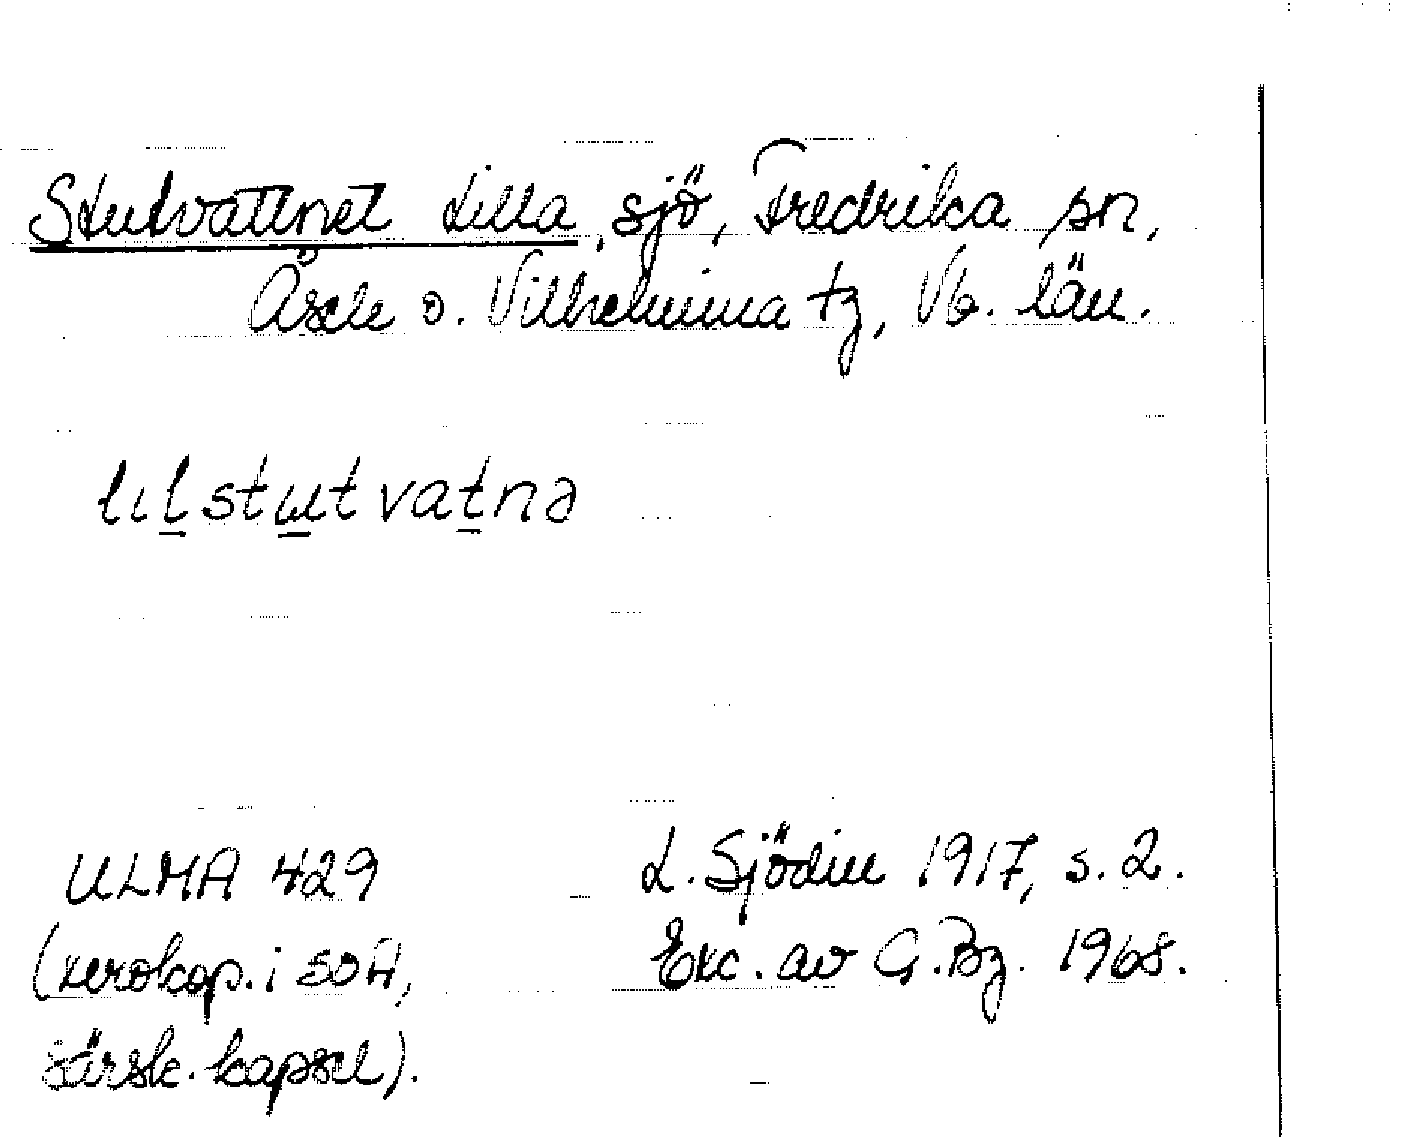 Stutvattnet Lilla, sjö, Fredrika sn,
Åsele o. Vilhelmina tg, Vb. län.
lılstutvatnə
ULMA 429
(xerokop. i SOA,
särsk. kapsel).
L. Sjödin 1917, s. 2.
Exc. av G. Bg. 1968.